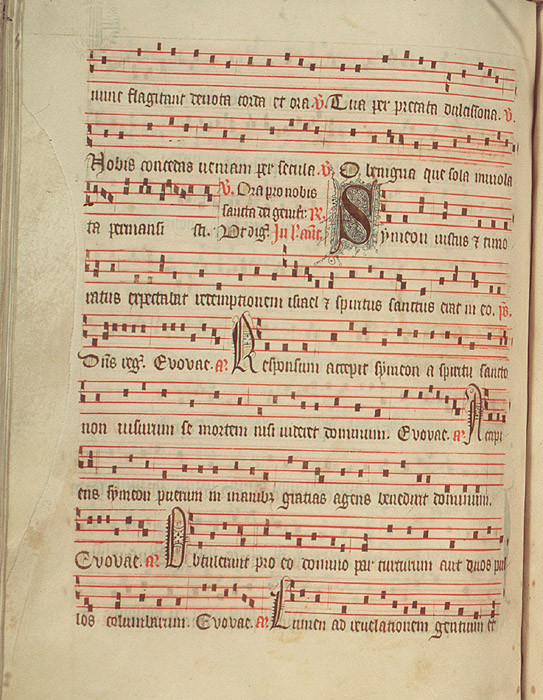 nunc flagitant devota corda et ora. V. Tua per precata dulcissona. V.
Nobis concedas veniam per secula. V. O benigna que sola inviola
V. Ora pro nobis
sancta dei genitr. R.
ta permansi sti. Ut dig. In laud. Symeon iustus et timo
ratus expectabat redemptionem israel et spiritus sanctus erat in eo. ps.
Dns reg. Evovae. a. Responsum accepit symeon a spiritu sancto
non visurum se mortem nisi videret dominum. Evovae. a. Accipi
ens symeon puerum in manibus gratias agens benedixit dominum.
Evovae. a. Obtulerunt pro eo domino par turturum aut duos pul
los columbarum. Evovae. a. Lumen ad revelationem gentium et